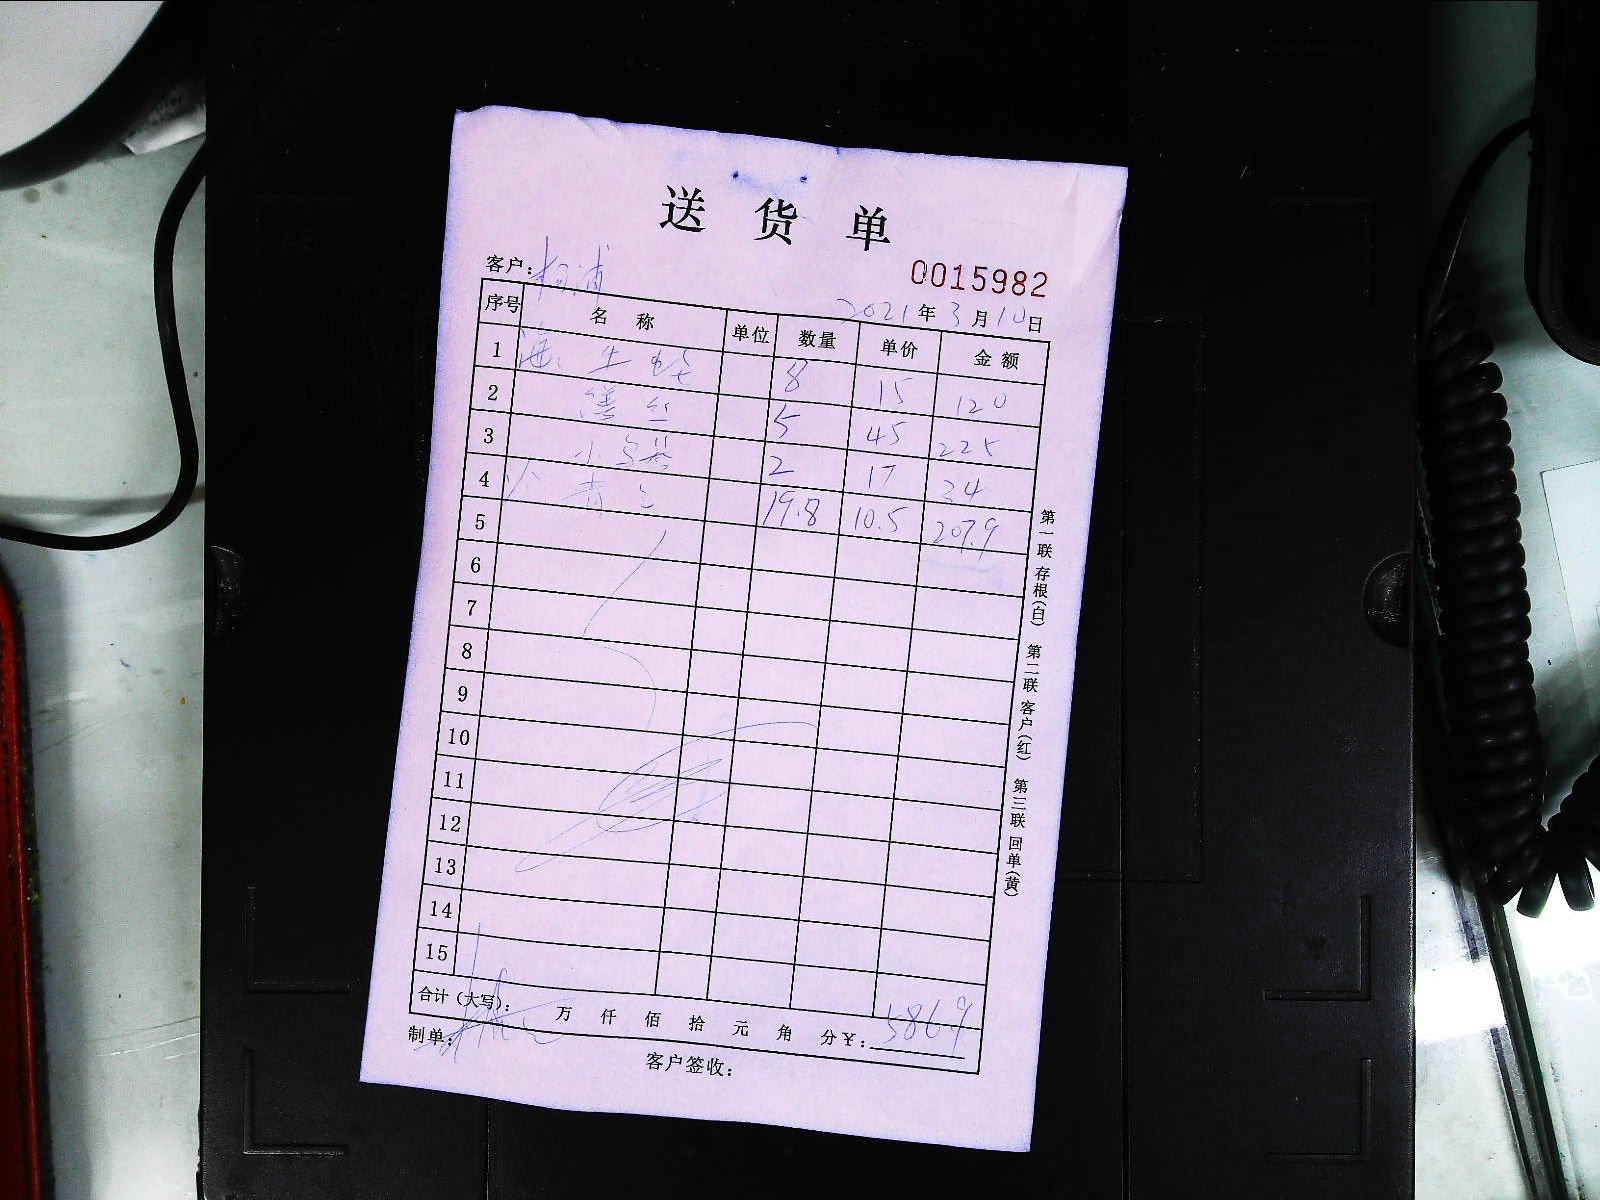 送 货 单
客户：杨浦
0015982
2021年3月10日
序号 名 称 单位 数量 单价 金额
1 8 15 120
2 5 45 225
3 小 2 17 34
4 19.8 10.5 207.9
5
6
7
8
9
10
11
12
13
14
15
合计（大写）： 万 仟 佰 拾 元 角 分￥：586.9
制单：
客户签收：
第一联 存根(白) 第二联 客户(红) 第三联 回单(黄)